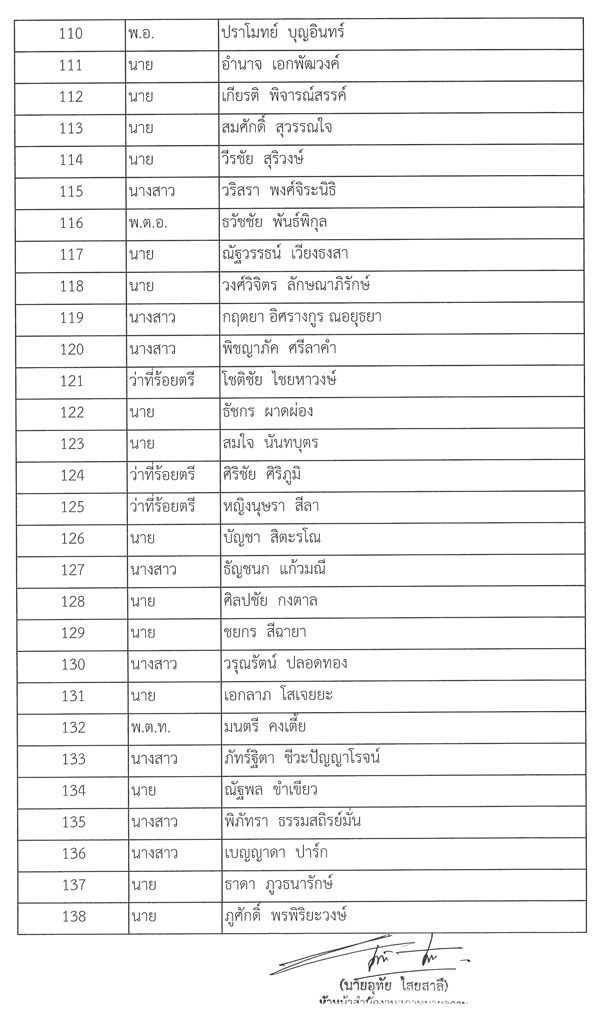 110 พ.อ. ปราโมทย์ บุญอินทร์
111 นาย อำนาจ เอกพัฒวงศ์
112 นาย เกียรติ พิจารณ์สรรค์
113 นาย สมศักดิ์ สุวรรณใจ
114 นาย วีรชัย สุริวงษ์
115 นางสาว วริสรา พงศ์จิระนิธิ
116 พ.ต.อ. ธวัชชัย พันธ์พิกุล
117 นาย ณัฐวรรธน์ เวียงธงสา
118 นาย วงศ์วิจิตร ลักษณาภิรักษ์
119 นางสาว กฤตยา อิศรางกูร ณอยุธยา
120 นางสาว พิชญาภัค ศรีลาคำ
121 ว่าที่ร้อยตรี โชติชัย ไชยหาวงษ์
122 นาย ธัชกร ผาดผ่อง
123 นาย สมใจ นันทบุตร
124 ว่าที่ร้อยตรี ศิริชัย ศิริภูมิ
125 ว่าที่ร้อยตรี หญิงนุษรา สีลา
126 นาย บัญชา สิตะรโณ
127 นางสาว ธัญชนก แก้วมณี
128 นาย ศิลปชัย กงตาล
129 นาย ชยกร สีฉายา
130 นางสาว วรุณรัตน์ ปลอดทอง
131 นาย เอกลาภ โสเจยยะ
132 พ.ต.ท. มนตรี คงเตี้ย
133 นางสาว ภัทร์ฐิตา ชีวะปัญญาโรจน์
134 นาย ณัฐพล ขำเขียว
135 นางสาว พิภัทรา ธรรมสถิรย์มั่น
136 นางสาว เบญญาดา ปาร์ก
137 นาย ธาดา ภูวธนารักษ์
138 นาย ภูศักดิ์ พรพิริยะวงษ์
(นายอุทัย ไสยสาลี)